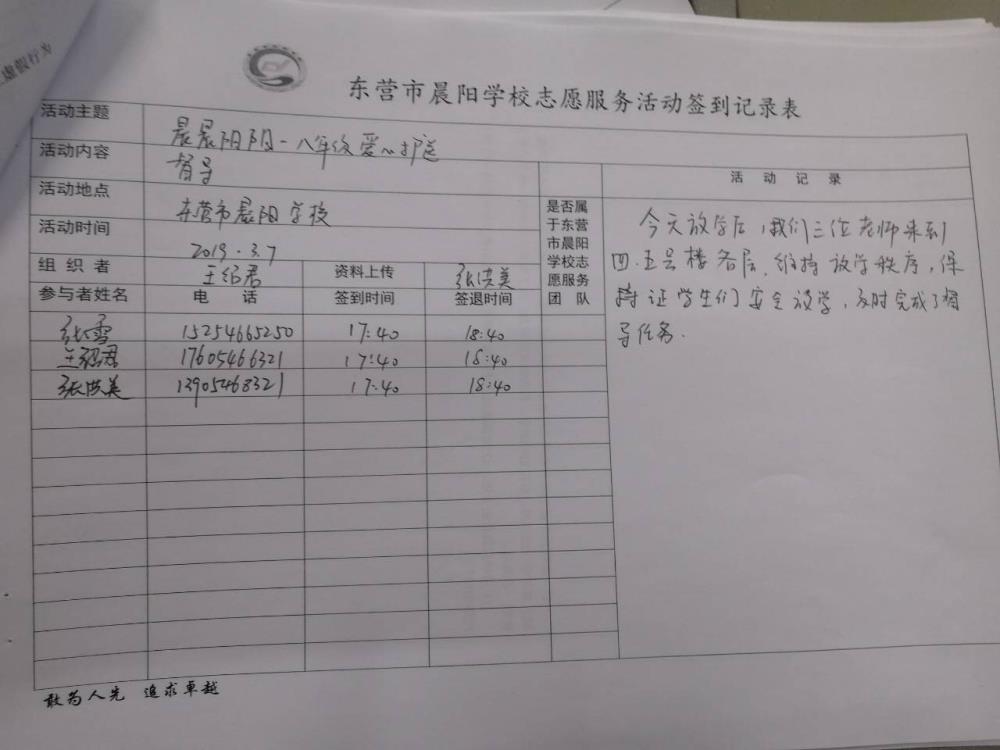 虚假行为
东营市晨阳学校志愿服务活动签到记录表
活动主题
晨晨阳阳-八年级爱心护送
活动内容
督导
活动地点
东营市晨阳学校
活动时间
2019.3.7
组织者
王绍君
资料上传
张洪美
参与者姓名
电话
签到时间
签退时间
是否属
于东营
市晨阳
学校志
愿服务
团队
活动记录
今天放学后,我们三位老师来到
四.五号楼各层,维持放学秩序,保
持证学生们安全放学,及时完成了督
导任务.
张雪 15254665250 17:40 18:40
王绍君 17605466321 17:40 18:40
张洪美 13905468321 17:40 18:40
敢为人先 追求卓越